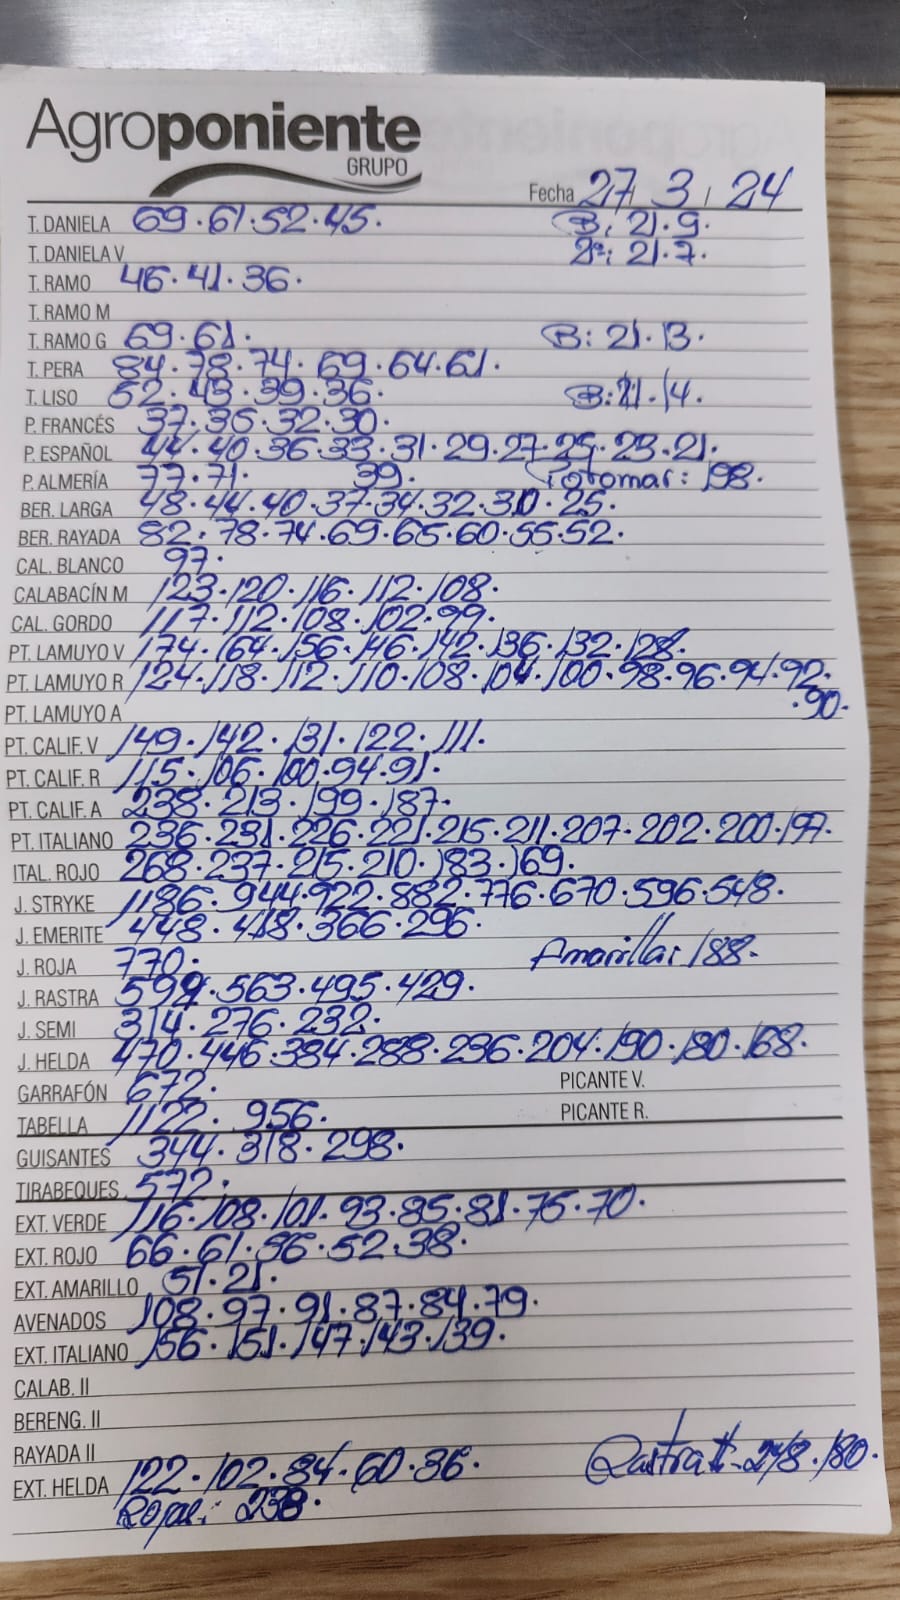 Agroponiente
GRUPO
Fecha 27 / 3 / 24
T. DANELA 69.61.52.45. B: 21.9.
T. DANIELA V 2ª: 21.7.
T. RAMO 46.41.36.
T. RAMO M
T. RAMO G 69.61. B: 21.13.
T. PERA 84.78.74.69.64.61.
T. LISO 52.43.39.36. B: 21.14.
P. FRANCÉS 37.35.32.30.
P. ESPAÑOL 44.40.36.33.31.29.27.25.23.21.
P. ALMERÍA 77.71. 39. 198.
BER. LARGA 48.44.40.37.34.32.30.25.
BER. RAYADA 82.78.74.69.65.60.55.52.
CAL. BLANCO 97.
CALABACÍN M 123.120.116.112.108.
CAL. GORDO 117.112.108.102.99.
PT. LAMUYO V 174.164.156.146.142.136.132.128.
PT. LAMUYO R 124.118.112.110.108.104.100.98.96.94.92.
PT. LAMUYO A .90.
PT. CALIF. V 149.142.131.122.111.
PT. CALIF. R 115.106.100.94.91.
PT. CALIF. A 238.213.199.187.
PT. ITALIANO 236.231.226.221.215.211.207.202.200.197.
ITAL. ROJO 268.237.215.210.183.169.
J. STRYKE 1186.944.922.882.776.670.596.548.
J. EMERITE 448.418.366.296.
J. ROJA 770. Amarilla: 188.
J. RASTRA 599.563.495.429.
J. SEMI 314.276.232.
J. HELDA 470.446.384.288.236.204.190.180.168.
GARRAFÓN 672. PICANTE V.
TABELLA 1122.956. PICANTE R.
GUISANTES 344.318.298.
TIRABEQUES 572.
EXT. VERDE 116.108.101.93.85.81.75.70.
EXT. ROJO 66.61.56.52.38.
EXT. AMARILLO 51.21.
AVENADOS 108.97.91.87.84.79.
EXT. ITALIANO 156.151.147.143.139.
CALAB. II
BERENG. II
RAYADA II
EXT. HELDA 122.102.84.60.36. Rastra II - 248.180.
Roja: 238.